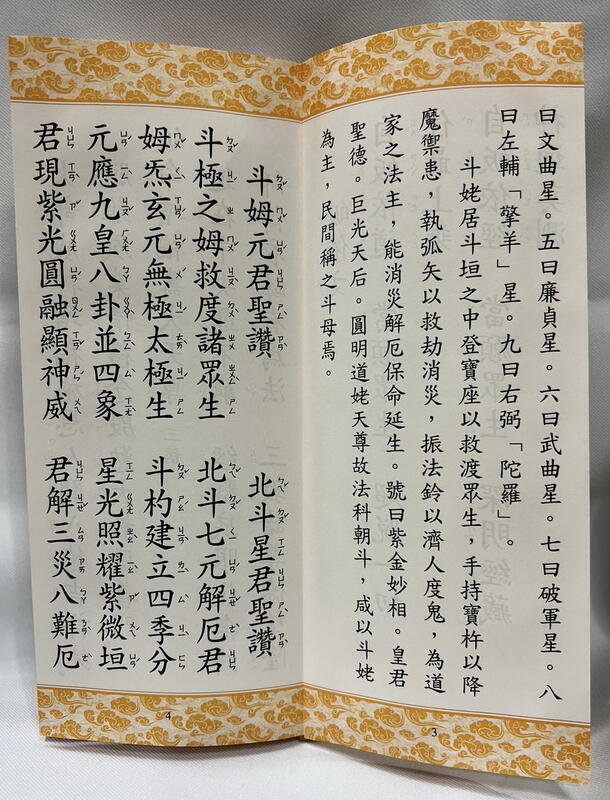 曰文曲星。五曰廉貞星。六曰武曲星。七曰破軍星。八
曰左輔「擎羊」星。九曰右弼「陀羅」。
斗姥居斗垣之中登寶座以救渡眾生,手持寶杵以降
魔禦患,執弧矢以救劫消災,振法鈴以濟人度鬼,為道
家之法主,能消災解厄保命延生。號曰紫金妙相。皇君
聖德。巨光天后。圓明道姥天尊故法科朝斗,咸以斗姥
為主,民間稱之斗母焉。
3
斗姆元君聖讚
斗極之姆救度諸眾生
姆炁玄元無極太極生
元應九皇八卦並四象
君現紫光圓融顯神威
北斗星君聖讚
北斗七元解厄君
斗杓建立四季分
星光照耀紫微垣
君解三災八難厄
4